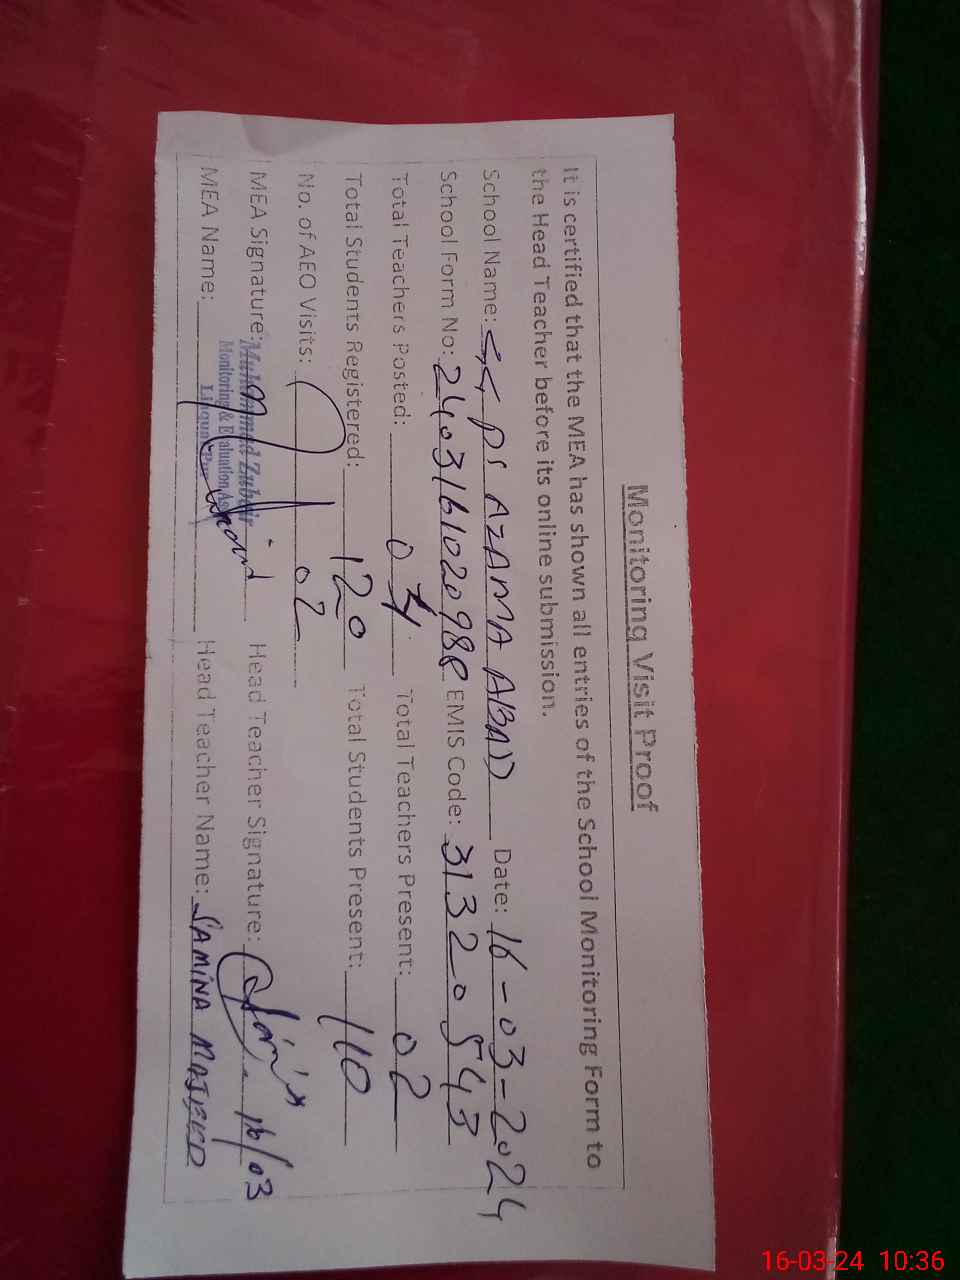 Monitoring Visit Proof
It is certified that the MEA has shown all entries of the School Monitoring Form to
the Head Teacher before its online submission.
School Name: GGPS AZAMA ABAD Date: 16-03-2024
School Form No: 24031610209 EMIS Code: 31320543
Total Teachers Posted: Total Teachers Present: 02
Total Students Registered: 120 Total Students Present: 110
No. of AEO Visits: 02
MEA Signature: Muhammad Zubair Head Teacher Signature: 16/03
Monitoring & Evaluation
MEA Name: Head Teacher Name: SAMINA MAJEED
16-03-24 10:36